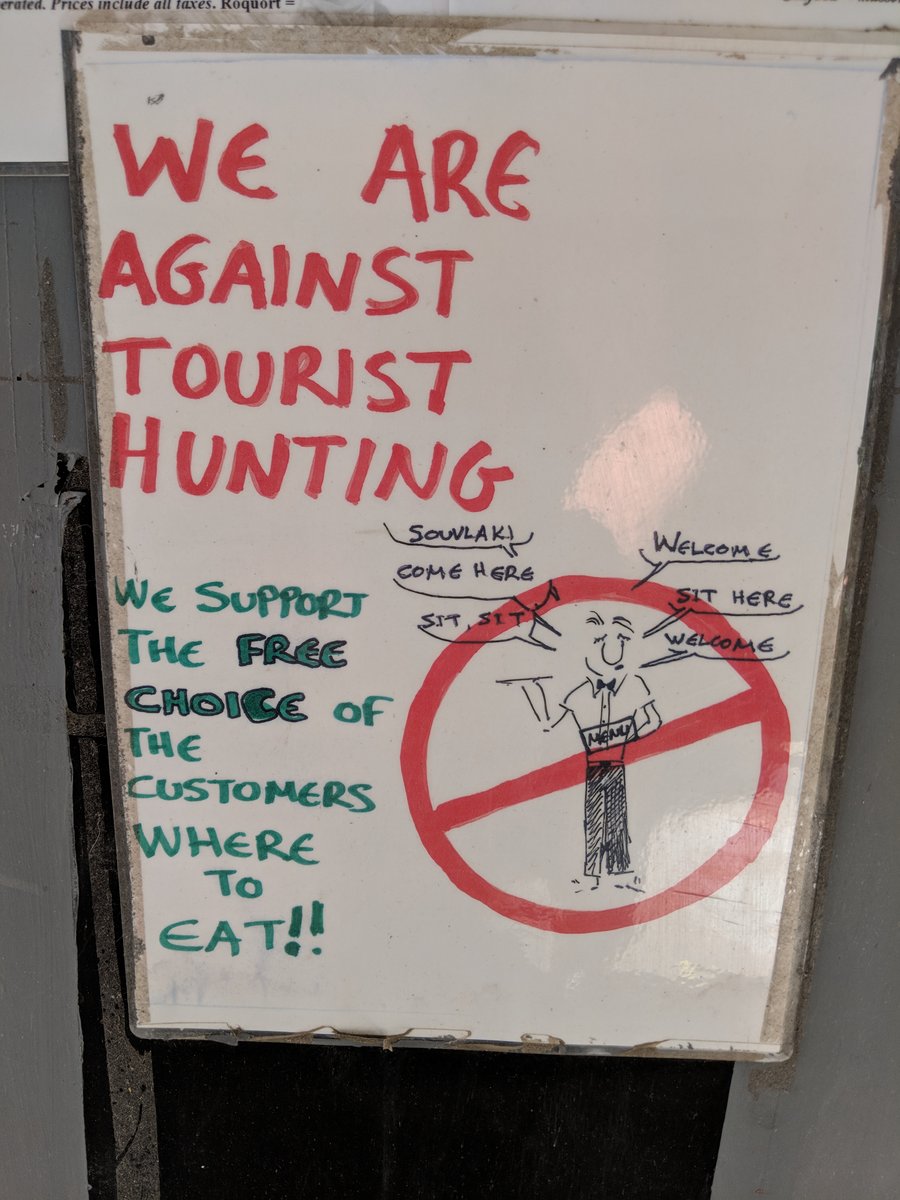 erated. Prices include all taxes. Roquort =
WE ARE
AGAINST
TOURIST
HUNTING
WE SUPPORT
THE FREE
CHOICE OF
THE
CUSTOMERS
WHERE
TO
EAT!!
SOUVLAKI
COME HERE
SIT, SIT
WELCOME
SIT HERE
WELCOME
MENU